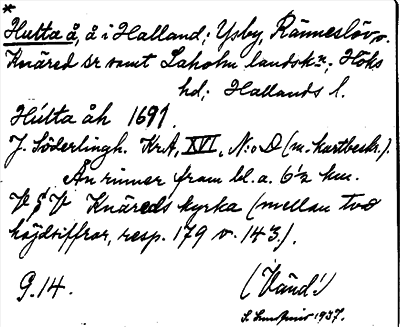 *
Hutta å, å i Halland; Ysby, Ränneslöv o.
Knäred sr samt Laholm landskn; Höks
hd; Hallands l.
Hútta åh 1691.
J. Söderlingh. KrA, XVI, N:o D (m. kartbeskr.).
Ån rinner fram bl. a. 6½ km.
V § V Knäreds kyrka (mellan två
höjdsiffror, resp. 179 o. 143).
G. 14.
(Vänd!)
1937.